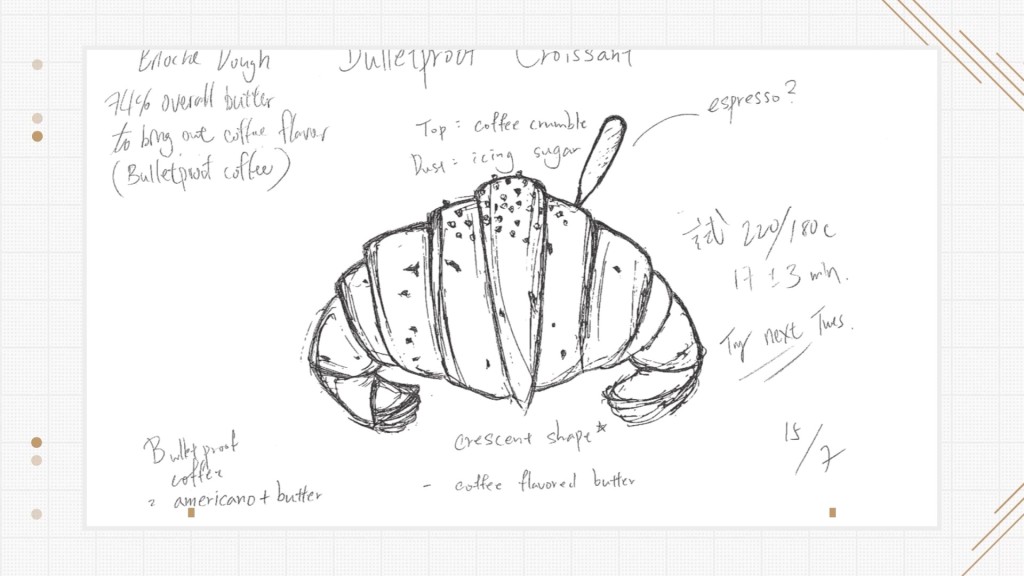 Brioche Dough
Bulletproof Croissant
74% overall butter
to bring out coffee flavor
(Bulletproof coffee)
Top: coffee crumble
Dust: icing sugar
espresso?
試 220/180c
17 ± 3 min.
Try next Tues.
Bulletproof
coffee
= americano + butter
crescent shape*
- coffee flavored butter
15/7